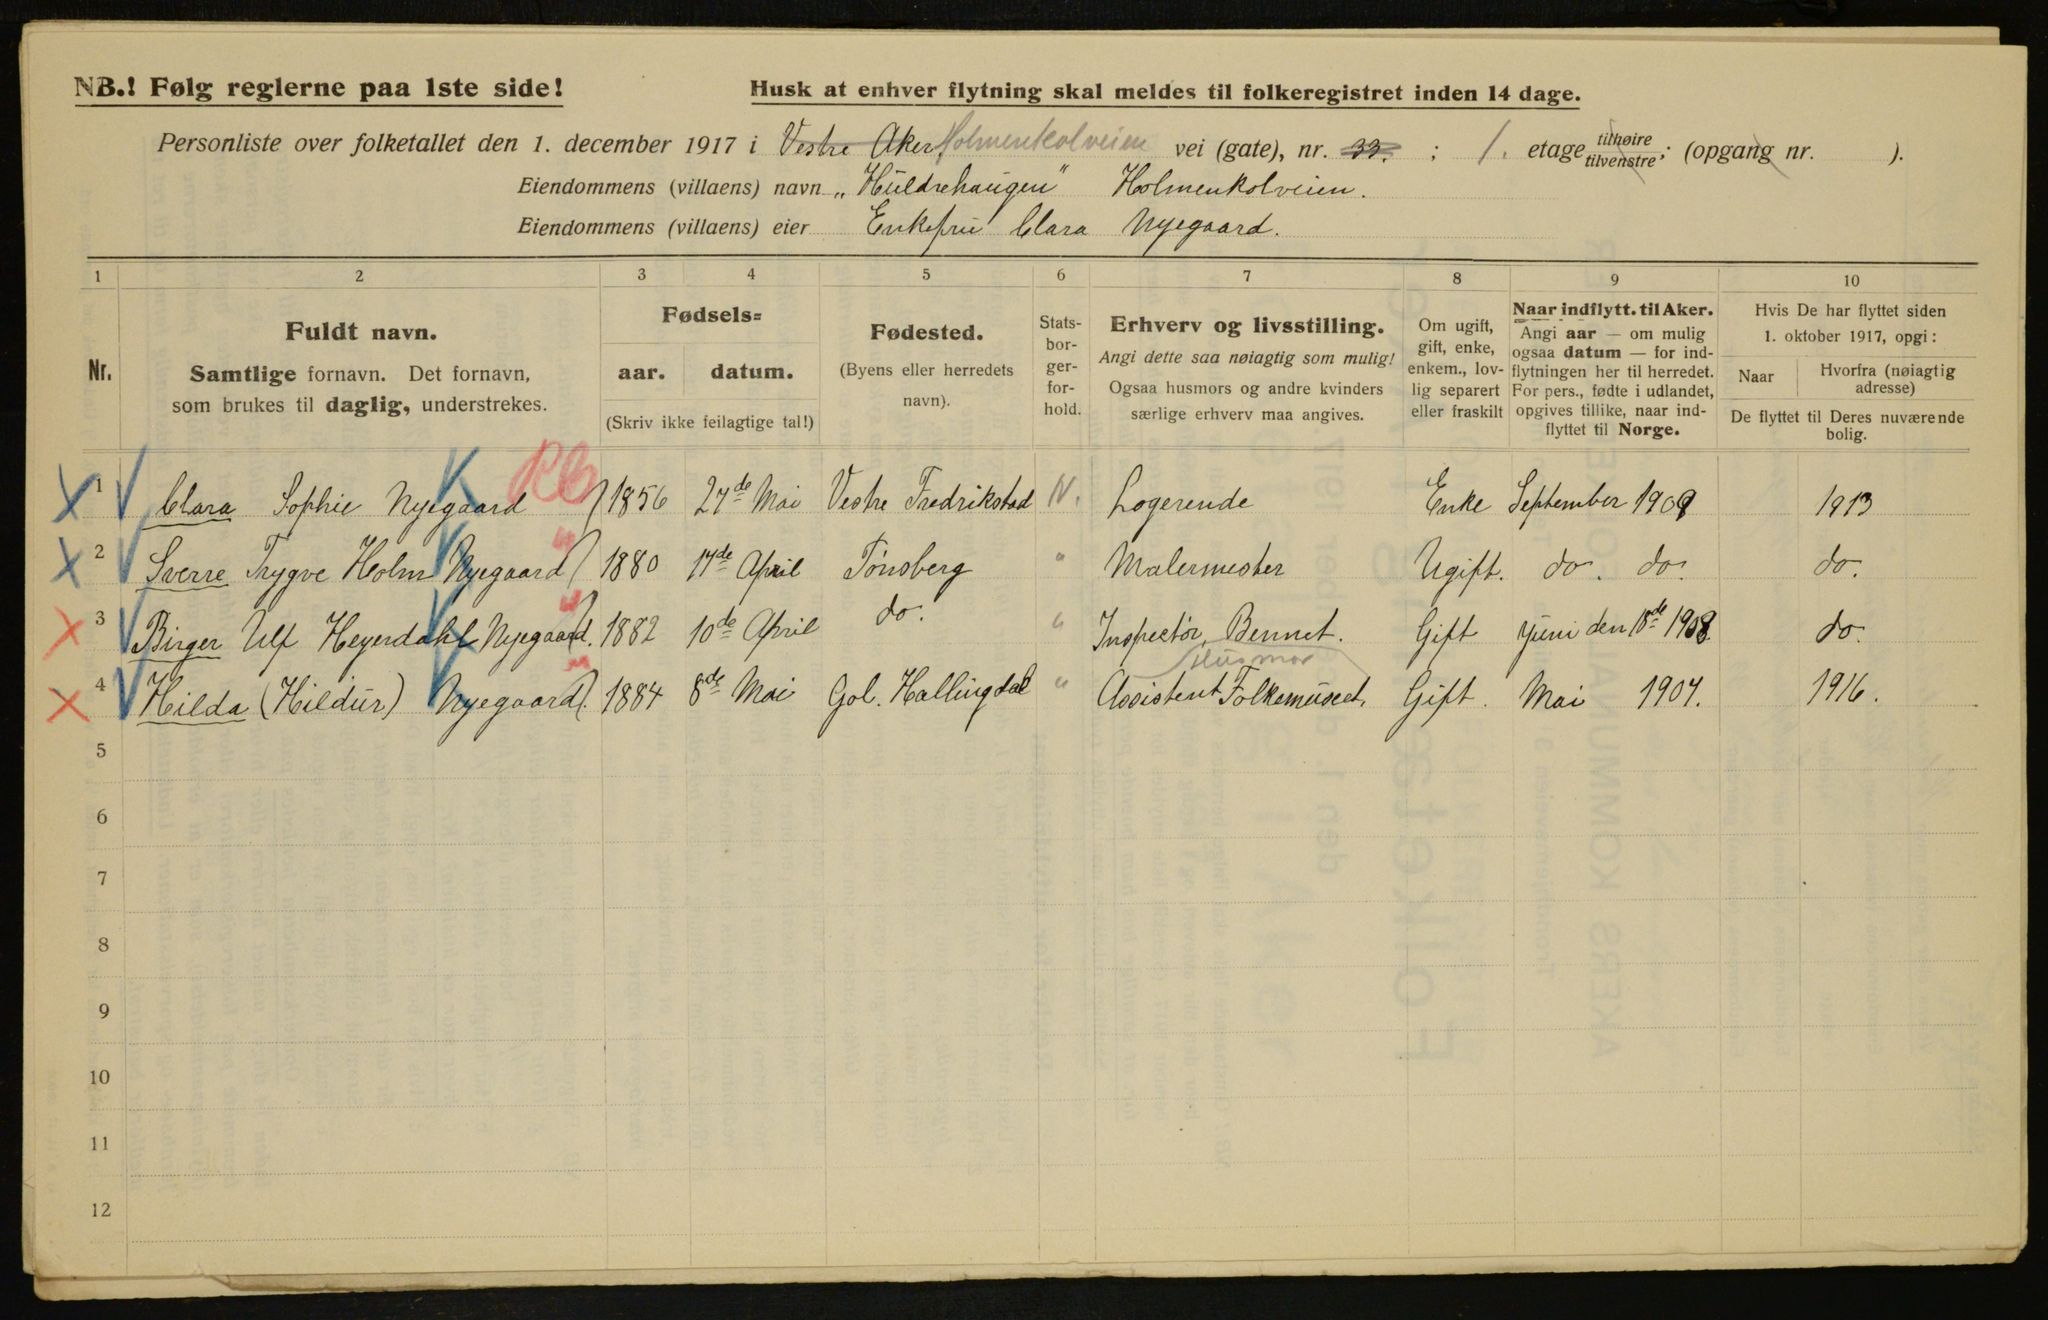 NB.! Følg reglerne paa 1ste side!
Husk at enhver flytning skal meldes til folkeregistret inden 14 dage.
Personliste over folketallet den 1. december 1917 i Vestre Aker, Holmenkolveien vei (gate), nr. 33. ; 1. etage tilhøire tilvenstre; (opgang nr. ).
Eiendommens (villaens) navn „Huldrehaugen“ Holmenkolveien.
Eiendommens (villaens) eier Enkefru Clara Nyegaard.
1 2 3 4 5 6 7 8 9 10
Nr.
Fuldt navn.
Samtlige fornavn. Det fornavn,
som brukes til daglig, understrekes.
Fødsels=
aar. datum.
(Skriv ikke feilagtige tal!)
Fødested.
(Byens eller herredets
navn).
Stats-
bor-
ger-
for-
hold.
Erhverv og livsstilling.
Angi dette saa nøiagtig som mulig!
Ogsaa husmors og andre kvinders
særlige erhverv maa angives.
Om ugift,
gift, enke,
enkem., lov-
lig separert
eller fraskilt
Naar indflytt. til Aker.
Angi aar — om mulig
ogsaa datum — for ind-
flytningen her til herredet.
For pers., fødte i udlandet,
opgives tillike, naar ind-
flyttet til Norge.
Hvis De har flyttet siden
1. oktober 1917, opgi:
Naar
Hvorfra (nøiagtig
adresse)
De flyttet til Deres nuværende
bolig.
1 Clara Sophie Nyegaard 1856 27de Mai Vestre Fredrikstad N. Logerende Enke September 1909 1913
2 Sverre Trygve Holm Nyegaard 1880 17de April Tönsberg " Malermester Ugift. do. do. do.
3 Birger Ulf Heyerdahl Nyegaard. 1882 10de April do. " Inspectör, Bennet. Gift Juni den 18de 1908. do.
Husmor
4 Hilda (Hildur) Nyegaard. 1884 8de Mai Gol. Hallingdal " Assistent Folkemuseet, Gift. Mai 1907. 1916.
5
6
7
8
9
10
11
12